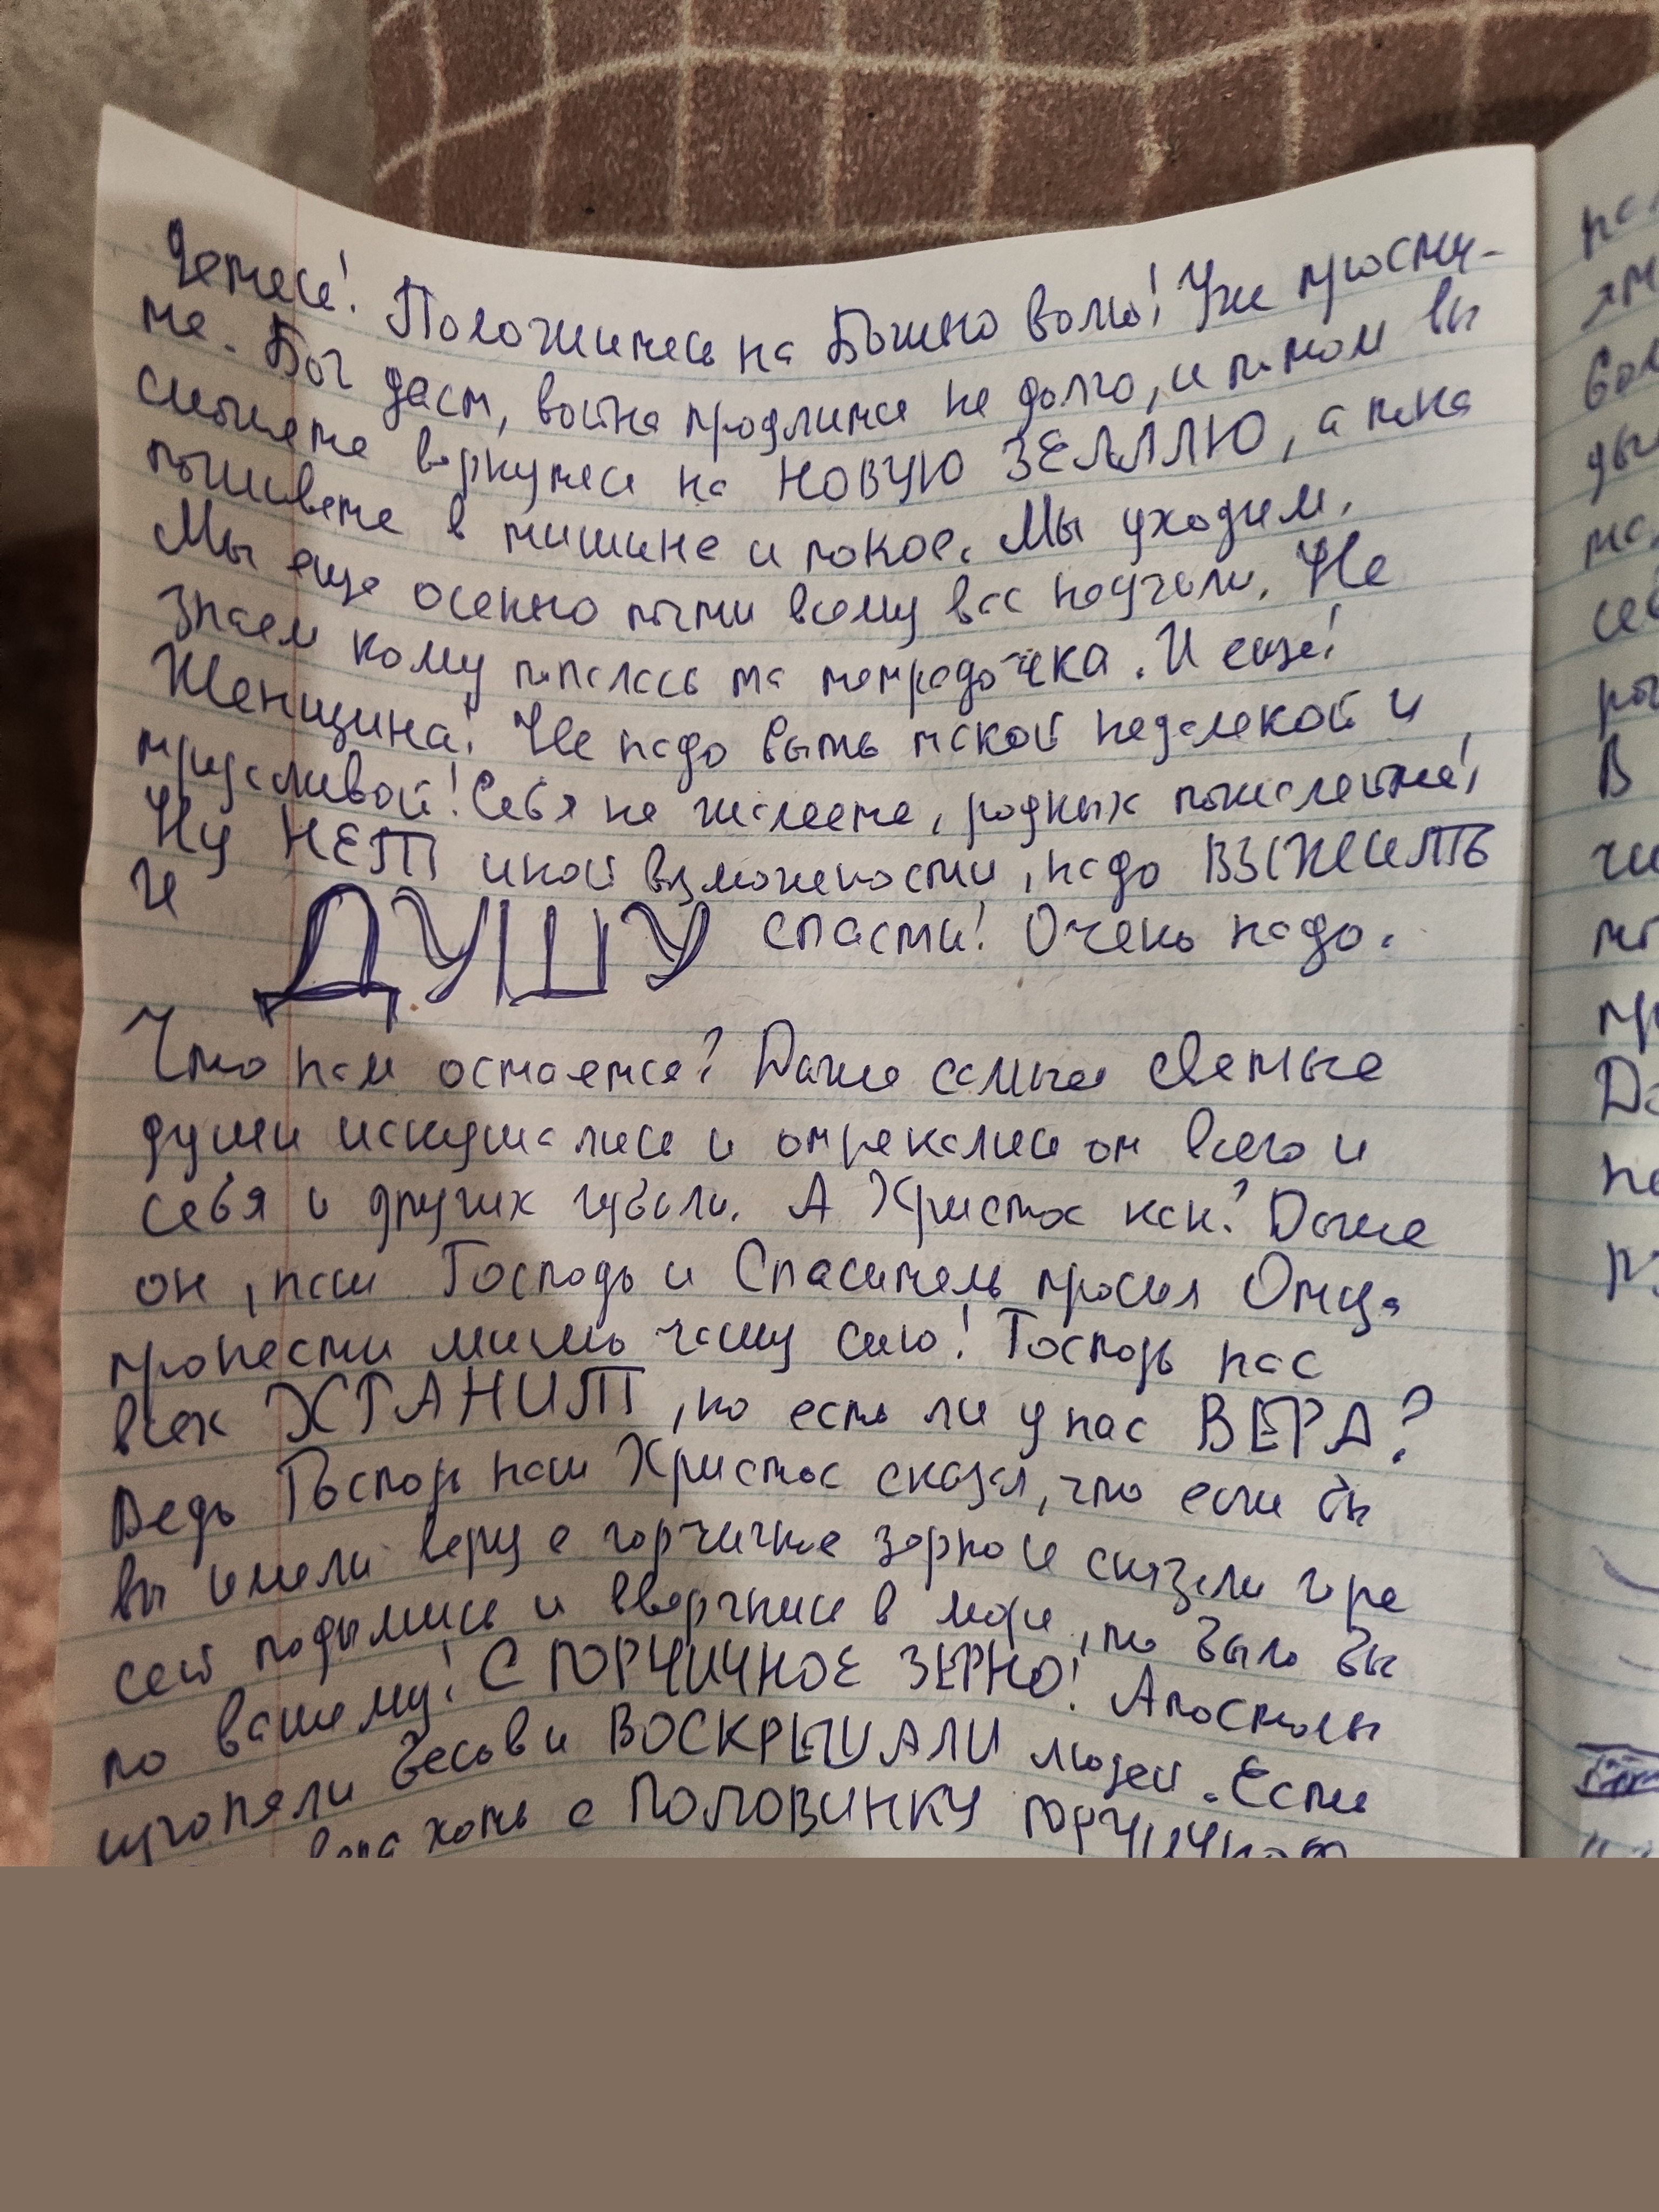 Детеси! Положитесь на Божию волю! Уже прости-
те. Бог даст, война продлится не долго, и потом вы
сможете вернутся на НОВУЮ ЗЕМЛЮ, а пока
поживете в тишине и покое. Мы уходим.
Мы еще осенью почти всему вас научили. Не
знаем кому попалась та тетрадочка. И еще!
Женщина! Не надо быть такой недалекой и
трусливой! Себя не жалеете, родных пожалейте!
Ну НЕТ иной возможности, надо ВЫЖИТЬ
и ДУШУ спасти! Очень надо.
Что нам остается? Даже самые светлые
души искушались и отрекались от всего и
себя и других губили. А Христос как? Даже
он, наш Господь и Спаситель просил Отца
пронести мимо чашу сию! Господь нас
всех ХРАНИТ, но есть ли у нас ВЕРА?
Ведь Господь наш Христос сказал, что если бы
вы имели веру с горчичное зерно и сказали горе
сей подымись и ввергнись в море, то было бы
по вашему! С ГОРЧИЧНОЕ ЗЕРНО! Апостолы
изгоняли бесов и ВОСКРЕШАЛИ людей. Если
вера хоть с ПОЛОВИНКУ ГОРЧИЧНОГО